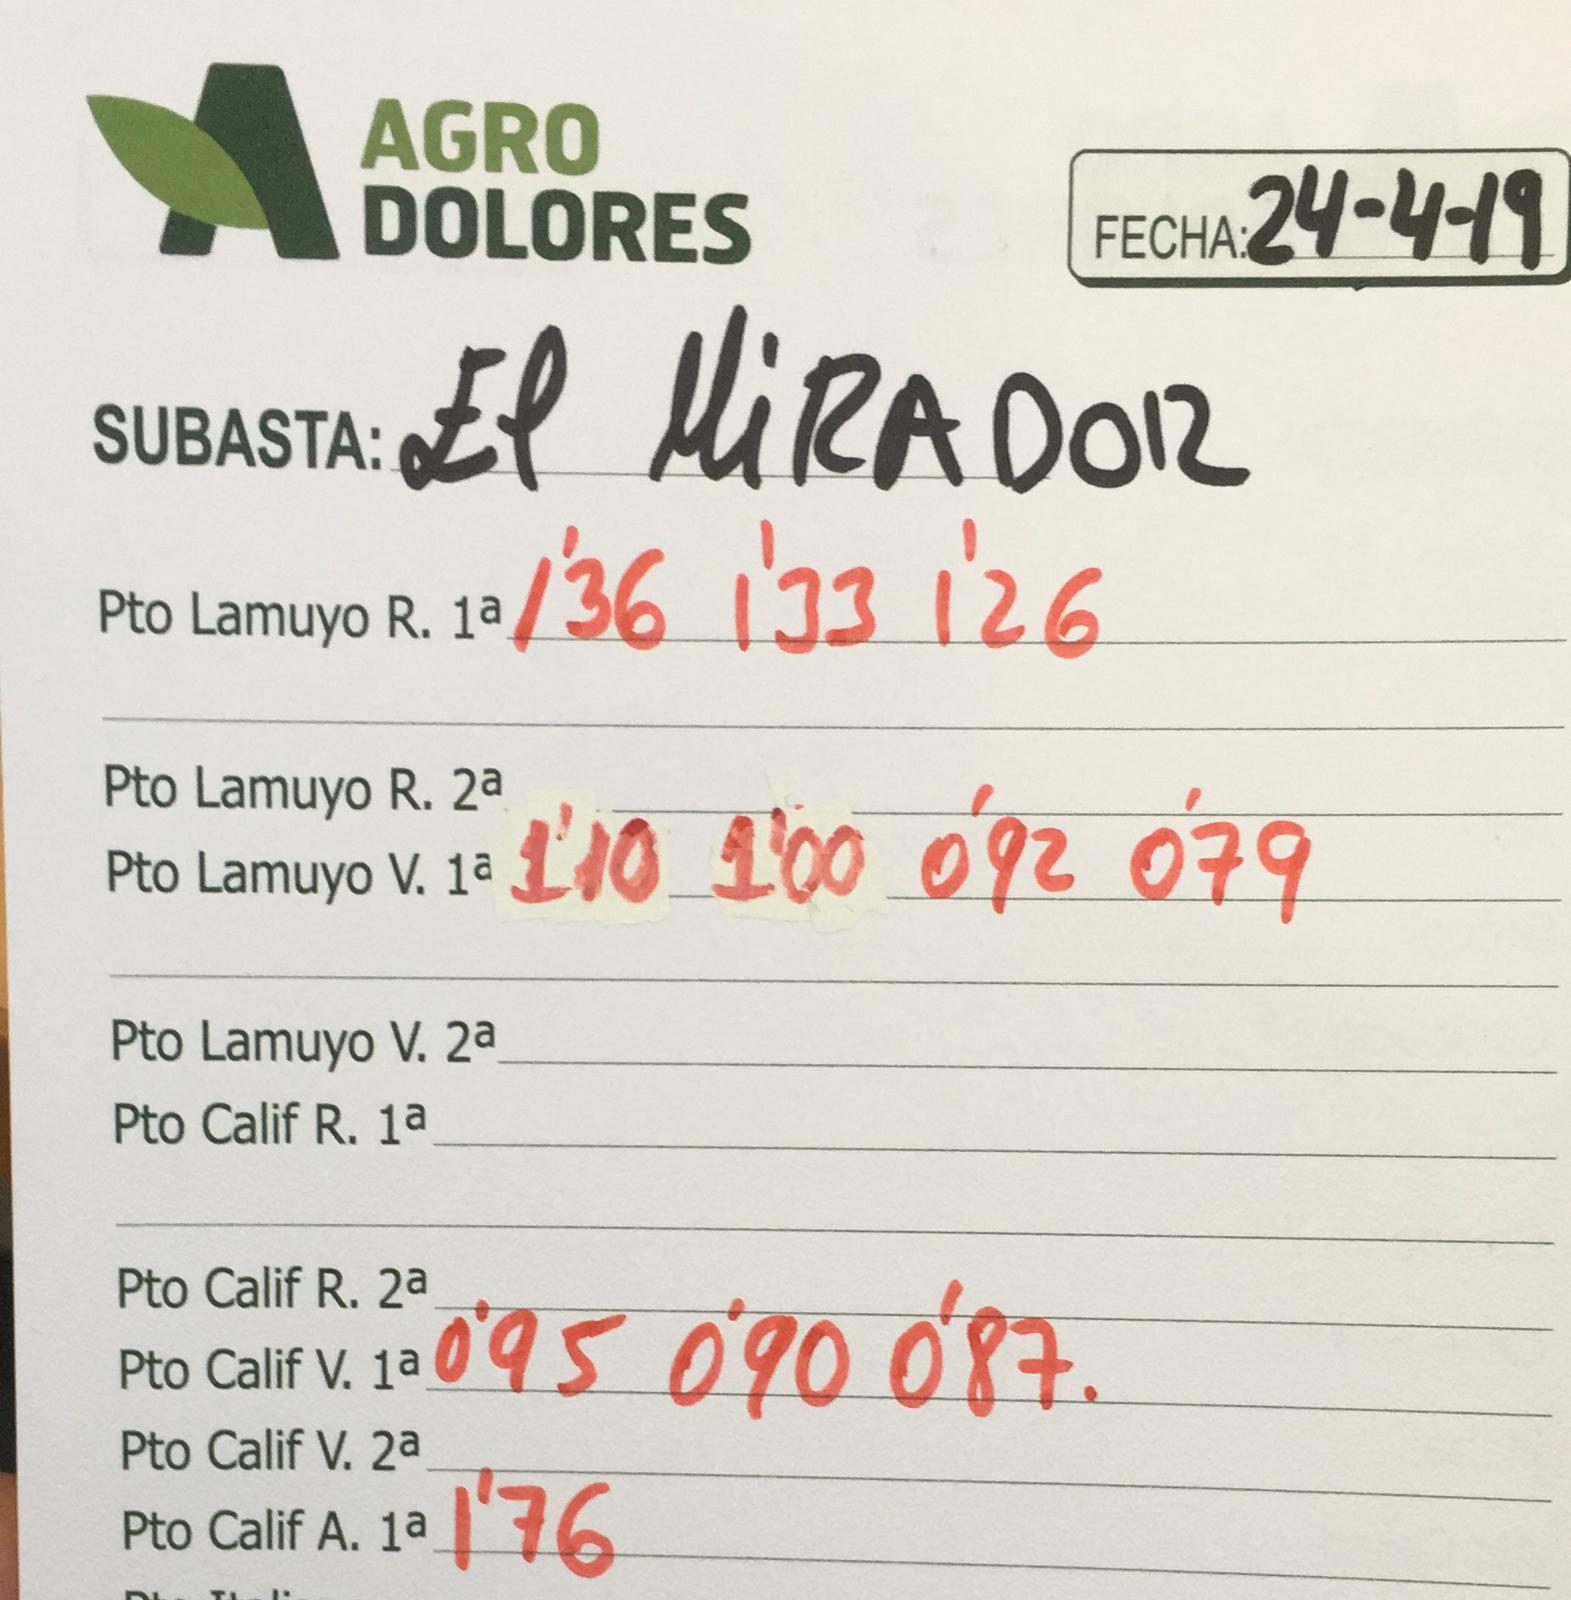 AGRO
DOLORES
FECHA: 24-4-19
SUBASTA: El MiRADOR
Pto Lamuyo R. 1ª 1'36 1'33 1'26
Pto Lamuyo R. 2ª
Pto Lamuyo V. 1ª 1'10 1'00 0'92 0'79
Pto Lamuyo V. 2ª
Pto Calif R. 1ª
Pto Calif R. 2ª
Pto Calif V. 1ª 0'95 0'90 0'87.
Pto Calif V. 2ª
Pto Calif A. 1ª 1'76